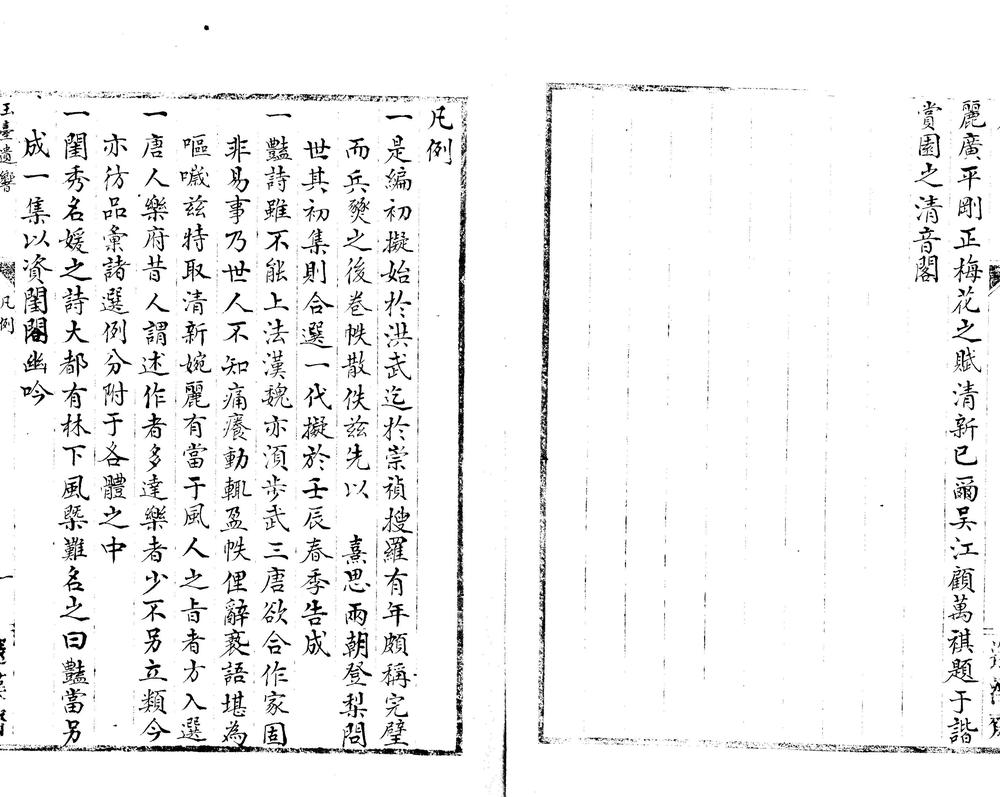 麗廣平剛正梅花之賦清新已爾吳江顧萬祺題于諧
賞園之清音閣
凡例
一是編初擬始於洪武迄於崇禎搜羅有年頗稱完璧
而兵燹之後卷帙散佚兹先以　熹思兩朝登梨問
世其初集則合選一代擬於壬辰春季告成
一豔詩雖不能上法漢魏亦須步武三唐欲合作家固
非易事乃世人不知痛癢動輒盈帙俚辭褻語堪為
嘔噦兹特取清新婉麗有當于風人之旨者方入選
一唐人樂府昔人謂述作者多達樂者少不另立類今
亦彷品彙諸選例分附于各體之中
一閨秀名媛之詩大都有林下風槩難名之曰豔當另
成一集以資閨閣幽吟
玉臺遺響
凡例
一